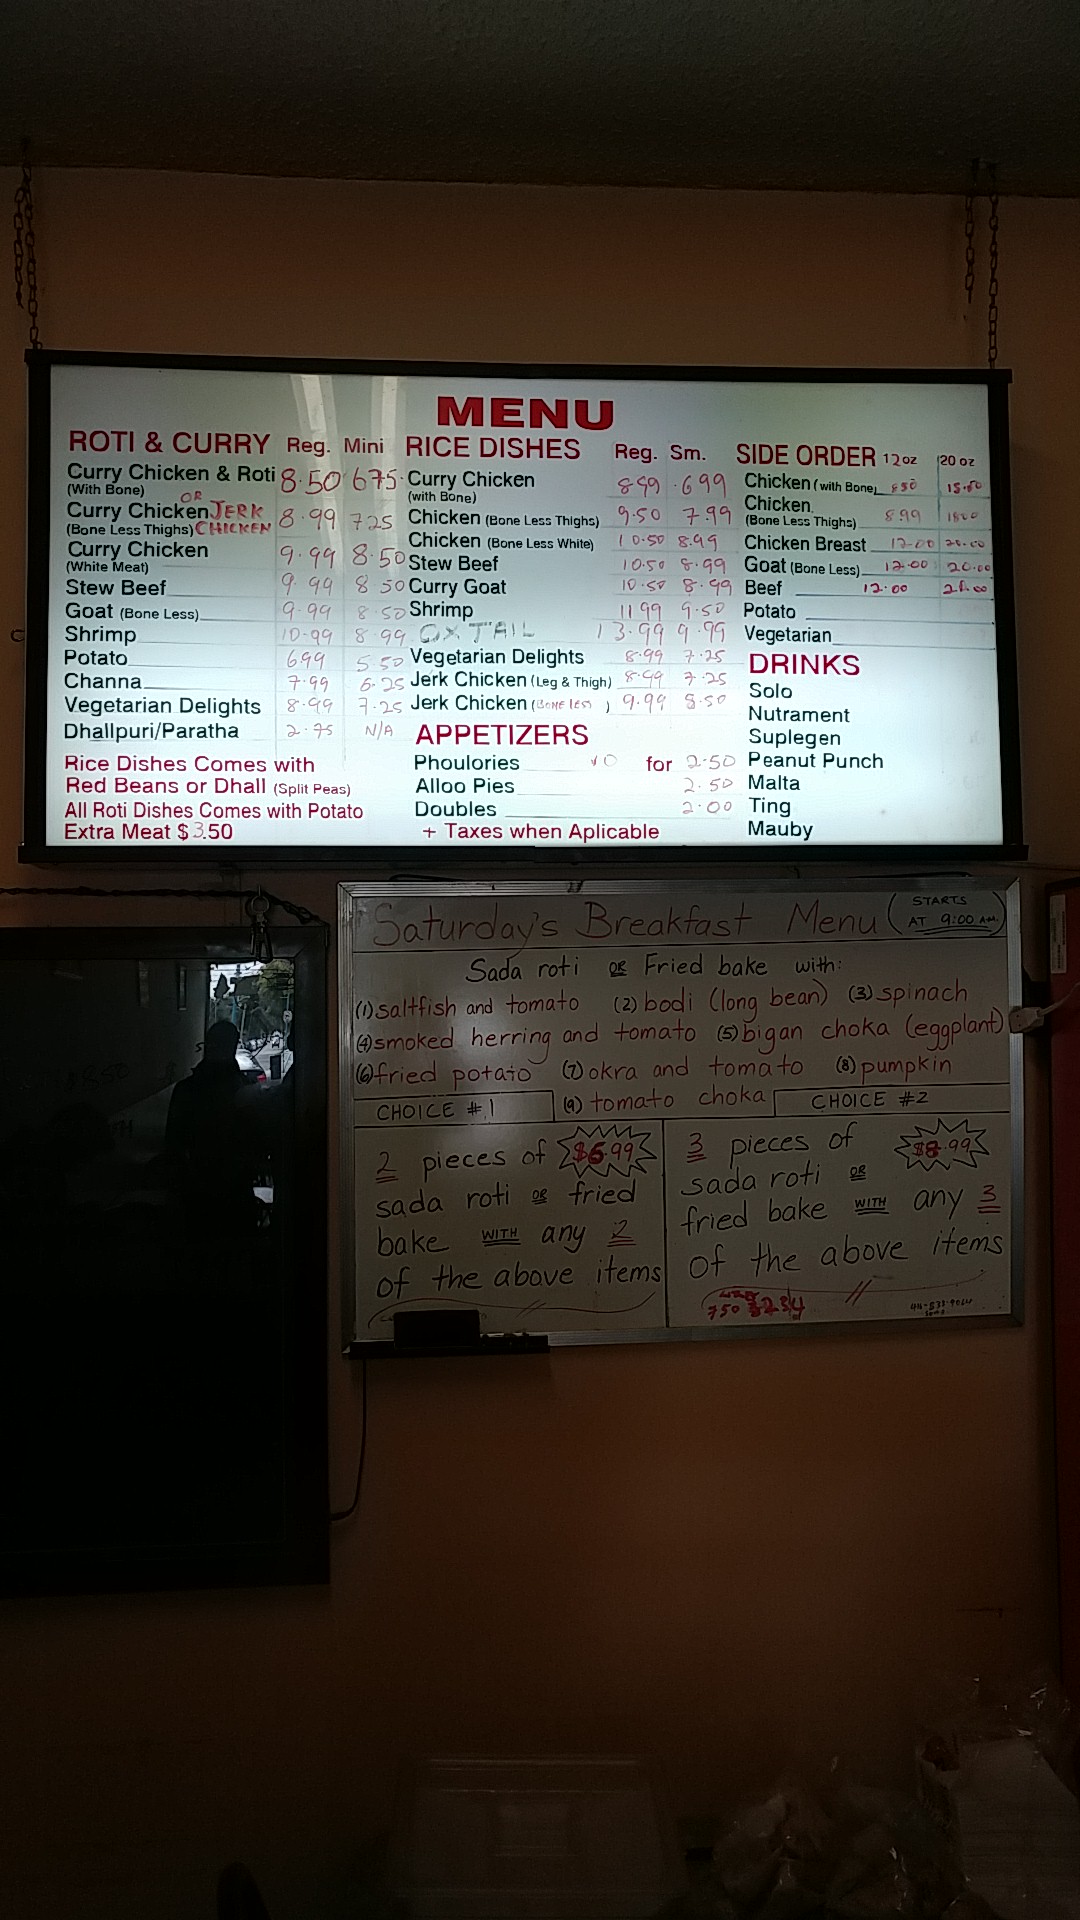 MENU
ROTI & CURRY Reg. Mini
Curry Chicken & Roti 8.50 6.75
(With Bone)
OR
Curry Chicken JERK 8.99 7.25
(Bone Less Thighs) CHICKEN
Curry Chicken 9.99 8.50
(White Meat)
Stew Beef 9.99 8.50
Goat (Bone Less) 9.99 8.50
Shrimp 10.99 8.99
Potato 6.99 5.50
Channa 7.99 6.25
Vegetarian Delights 8.99 7.25
Dhallpuri/Paratha 2.75 N/A
Rice Dishes Comes with
Red Beans or Dhall (Split Peas)
All Roti Dishes Comes with Potato
Extra Meat $3.50
RICE DISHES Reg. Sm.
Curry Chicken 8.99 6.99
(with Bone)
Chicken (Bone Less Thighs) 9.50 7.99
Chicken (Bone Less White) 10.50 8.99
Stew Beef 10.50 8.99
Curry Goat 10.50 8.99
Shrimp 11.99 9.50
OXTAIL 13.99 9.99
Vegetarian Delights 8.99 7.25
Jerk Chicken (Leg & Thigh) 8.99 7.25
Jerk Chicken (BONE less) 9.99 8.50
APPETIZERS
Phoulories 10 for 2.50
Alloo Pies 2.50
Doubles 2.00
+ Taxes when Aplicable
SIDE ORDER 12oz 20 oz
Chicken (with Bone) 8.50 15.50
Chicken
(Bone Less Thighs) 8.99 18.00
Chicken Breast 12.00 20.00
Goat (Bone Less) 12.00 20.00
Beef 12.00 20.00
Potato
Vegetarian
DRINKS
Solo
Nutrament
Suplegen
Peanut Punch
Malta
Ting
Mauby
Saturday's Breakfast Menu (STARTS
AT 9:00 AM)
Sada roti OR Fried bake with:
(1) saltfish and tomato (2) bodi (long bean) (3) spinach
(4) smoked herring and tomato (5) bigan choka (eggplant)
(6) fried potato (7) okra and tomato (8) pumpkin
(9) tomato choka
CHOICE #1
2 pieces of $6.99
sada roti OR fried
bake WITH any 2
of the above items
CHOICE #2
3 pieces of $8.99
sada roti OR
fried bake WITH any 3
of the above items